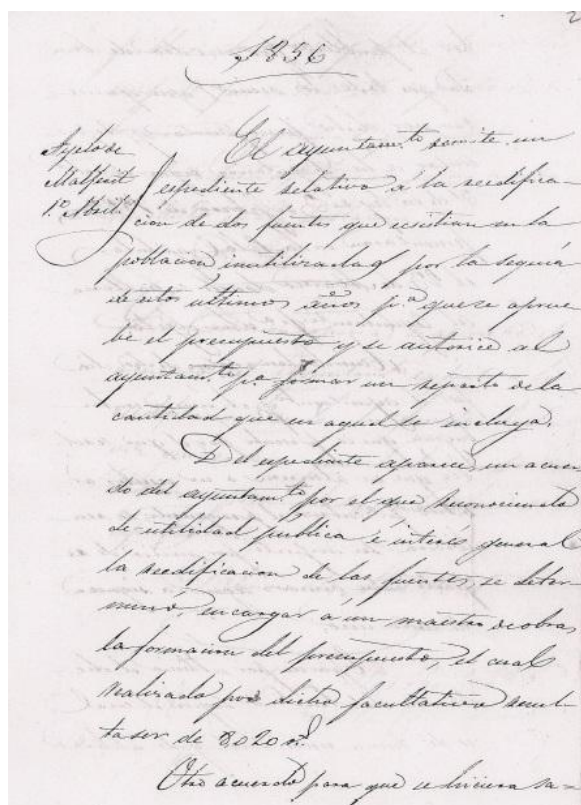 2
1856
Ayelo de
Malferit
1º Abril
El ayuntam.to remite un
espediente relativo á la reedifica-
cion de dos fuentes que ecsistian en la
poblacion inutilizadas por la sequia
de estos últimos años p.a que se aprue
be el presupuesto y se autorice al
ayuntam.to pa formar un reparto de la
cantidad que en aquel se incluya.
Del espediente aparece un acuer
do del ayuntam.to por el que reconociendo
de utilidad publica é interes general
la reedificacion de las fuentes, se deter
minó, encargar á un maestro de obras
la formacion del presupuesto, el cual
realizado por dicho facultativo resul-
ta ser de 8.020 r.s
Otro acuerdo para que se hiciera sa=